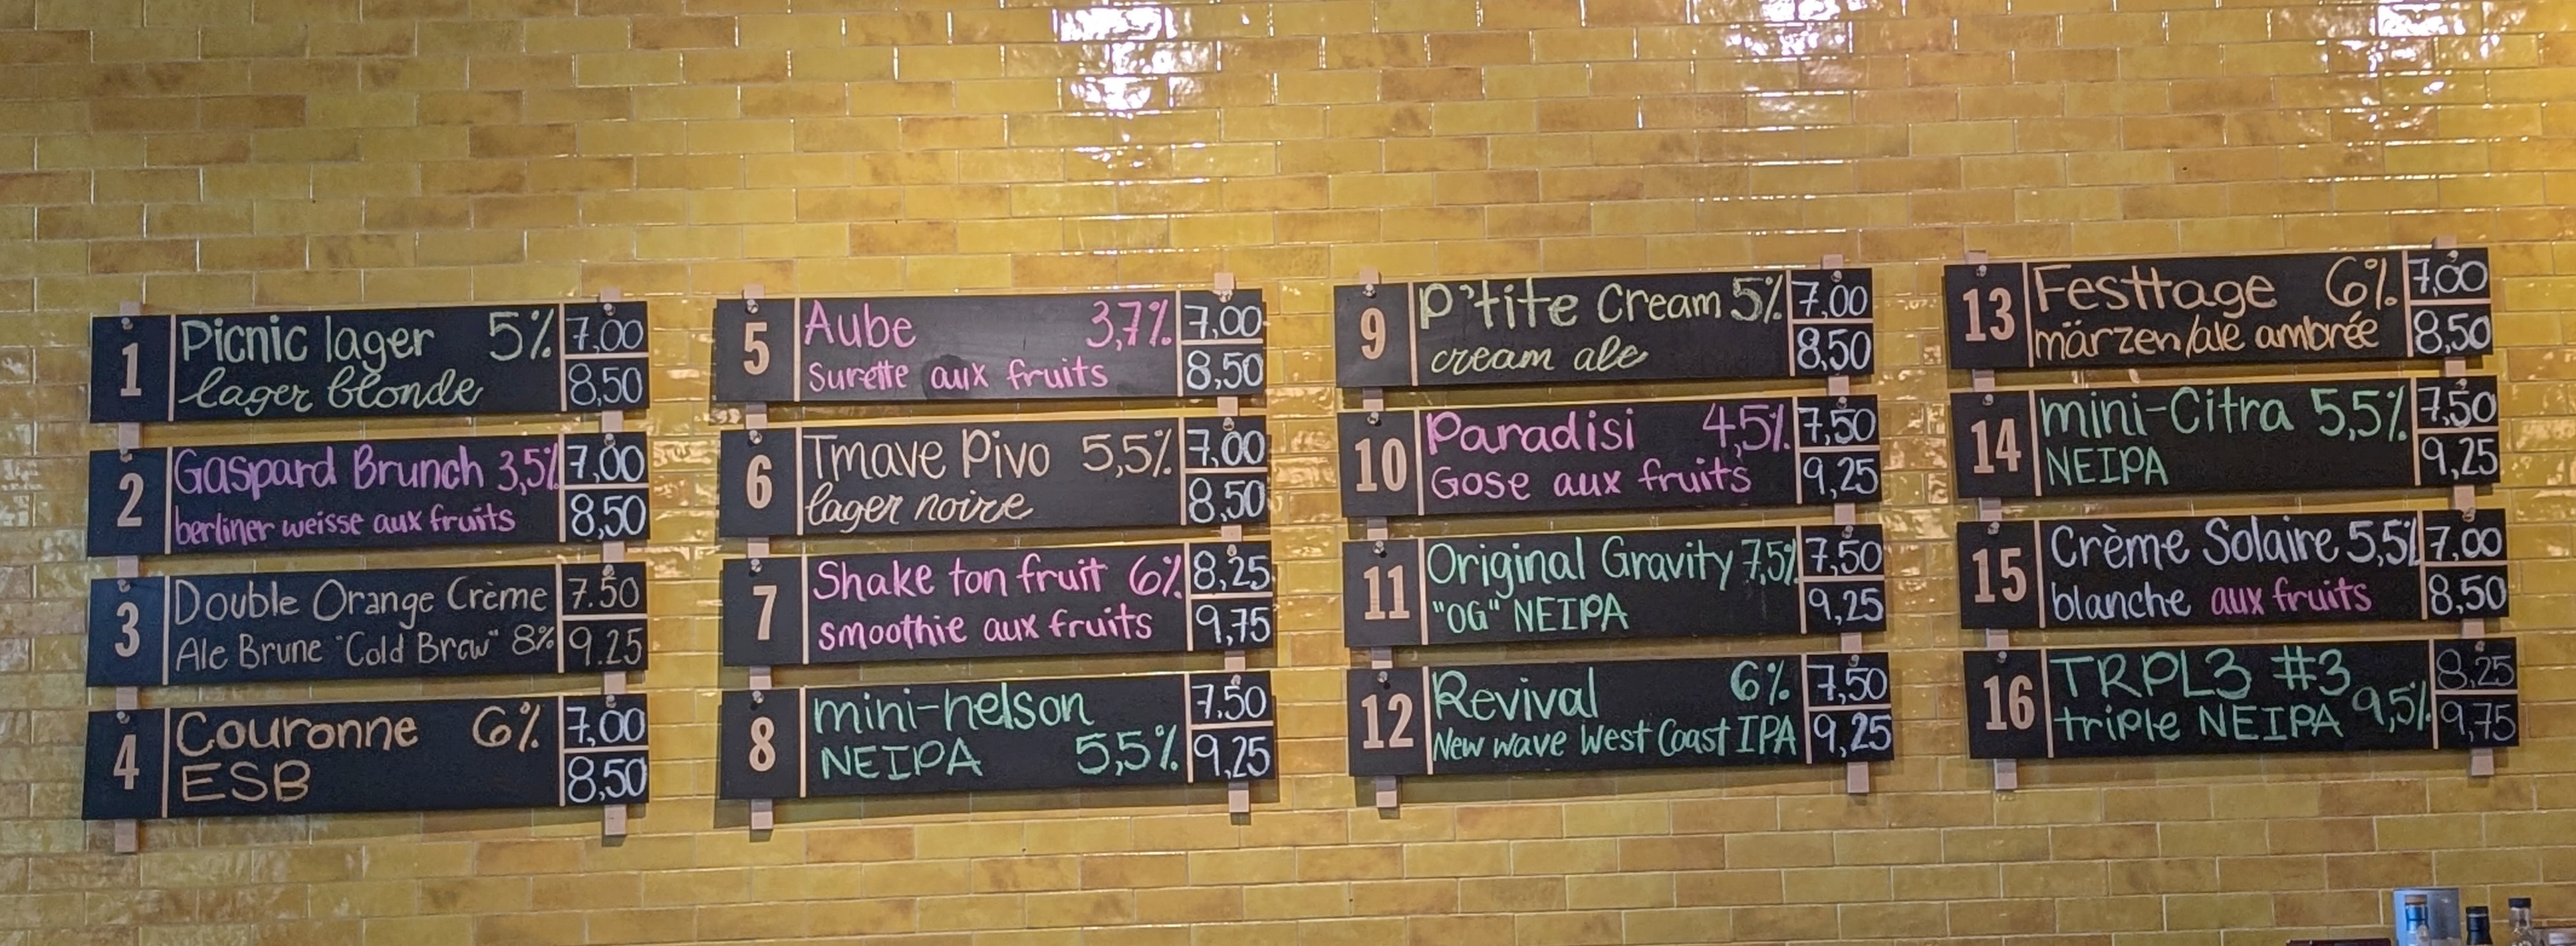 1
Picnic lager 5% 7,00
lager blonde 8,50
2
Gaspard Brunch 3,5% 7,00
berliner weisse aux fruits 8,50
3
Double Orange Crème 7.50
Ale Brune "Cold Brew" 8% 9.25
4
Couronne 6% 7,00
ESB 8,50
5
Aube 3,7% 7,00
Surette aux fruits 8,50
6
Tmave Pivo 5,5% 7,00
lager noire 8,50
7
Shake ton fruit 6% 8,25
smoothie aux fruits 9,75
8
mini-nelson 7,50
NEIPA 5,5% 9,25
9
P'tite Cream 5% 7,00
cream ale 8,50
10
Paradisi 4,5% 7,50
Gose aux fruits 9,25
11
Original Gravity 7,5% 7,50
"OG" NEIPA 9,25
12
Revival 6% 7,50
New wave West Coast IPA 9,25
13
Festtage 6% 7,00
märzen/ale ambrée 8,50
14
mini-Citra 5,5% 7,50
NEIPA 9,25
15
Crème Solaire 5,5% 7,00
blanche aux fruits 8,50
16
TRPL3 #3 8,25
triple NEIPA 9,5% 9,75